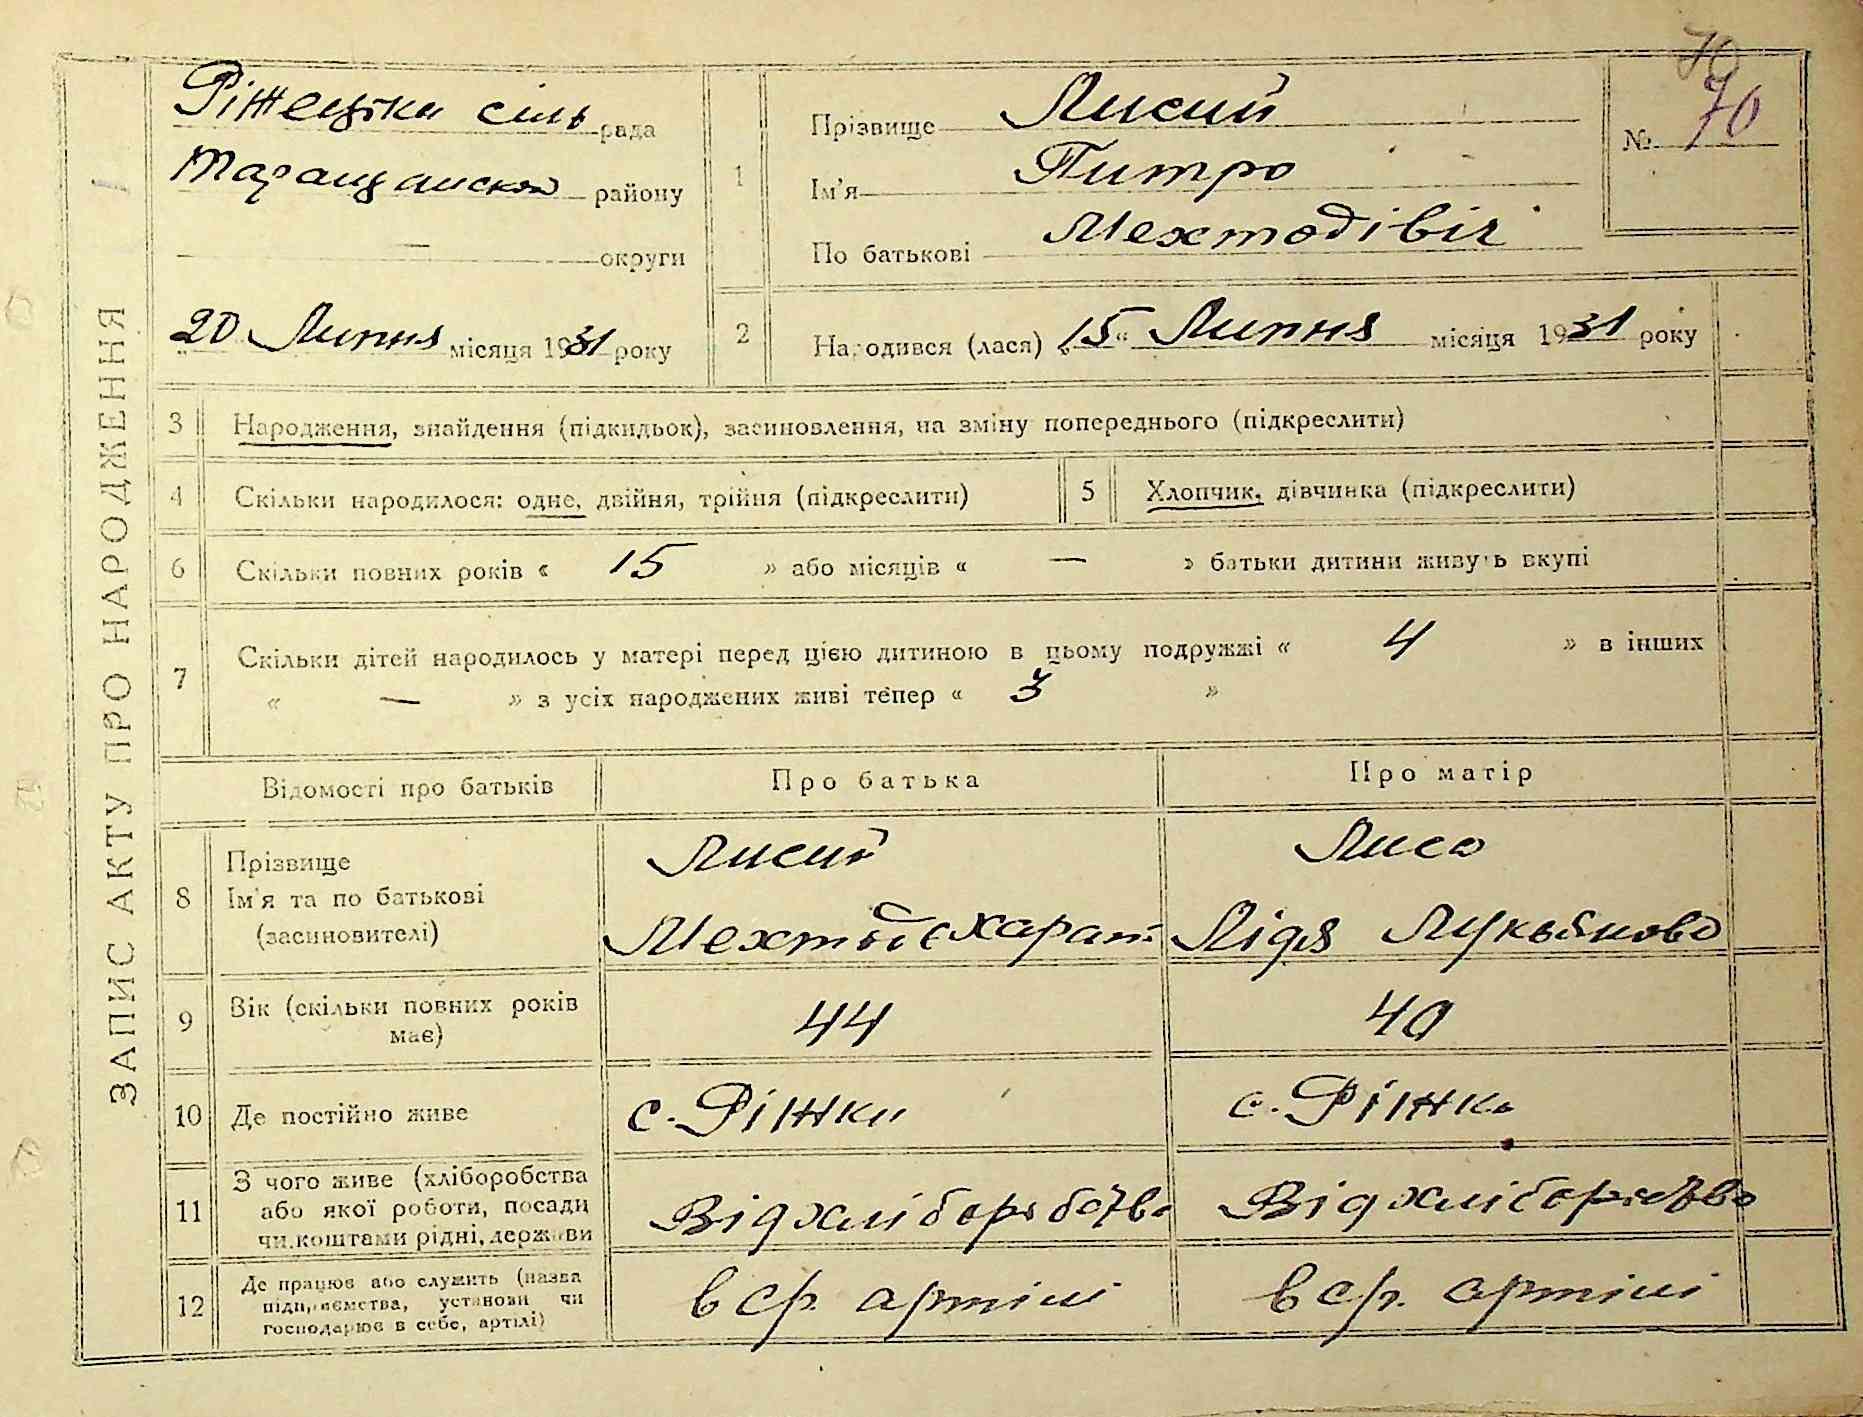 ЗАПИС АКТУ ПРО НАРОДЖЕННЯ
Ріжецька сіль рада
Таращанском району
— округи
„20 Липня місяця 1931 року
1 Прізвище Лисий
Ім'я Питро
По батькові Мехтодівіч
№ 70
70
2 Народився (лася) „15“ Липня місяця 1931 року
3 Народження, знайдення (підкидьок), засиновлення, на зміну попереднього (підкреслити)
4 Скільки народилося: одне, двійня, трійня (підкреслити)
5 Хлопчик, дівчинка (підкреслити)
6 Скільки повних років « 15 » або місяців « — » батьки дитини живуть вкупі
7 Скільки дітей народилось у матері перед цією дитиною в цьому подружжі « 4 » в інших
« — » з усіх народжених живі тепер « 3 »
Відомості про батьків Про батька Про матір
8 Прізвище
Ім'я та по батькові
(засиновителі)
Лисий
Лиса
Лідя Лукьянова
9 Вік (скільки повних років
має)
44
40
10 Де постійно живе
с. Ріжки
с. Ріжки
11 З чого живе (хліборобства
або якої роботи, посади
чи коштами рідні, держави
Від хліборобства
Від хліборобства
12 Де працює або служить (назва
підприємства, установи чи
господарює в себе, артілі)
в ср. артілі
в ср. артілі